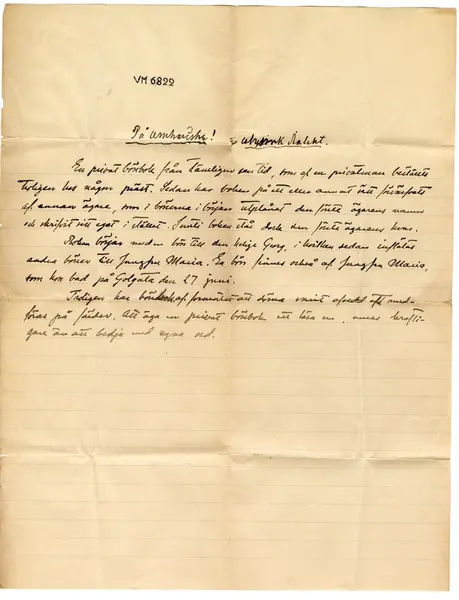 VM 6822
På amhariska! abyssinsk dialekt.
En privat bönbok från tämligen sen tid, som af en privatman beställts
troligen hos någon präst. Sedan har boken på ett eller annat sätt förvärfvats
af annan ägare, som i bönerna i början utplånat den förste ägarens namn
och skrifvit sitt eget i stället. Inuti boken står dock den förste ägarens kvar.
Boken börjas med en bön till den helige Georg, i hvilken sedan inflätas
andra böner till Jungfru Maria. En bön finnes också af Jungfru Maria,
som hon bad på Golgata den 27 juni.
Troligen har
föras på färder. Att äga en privat bönbok att läsa ur, anses krafti-
gare än att bedja med egna ord.